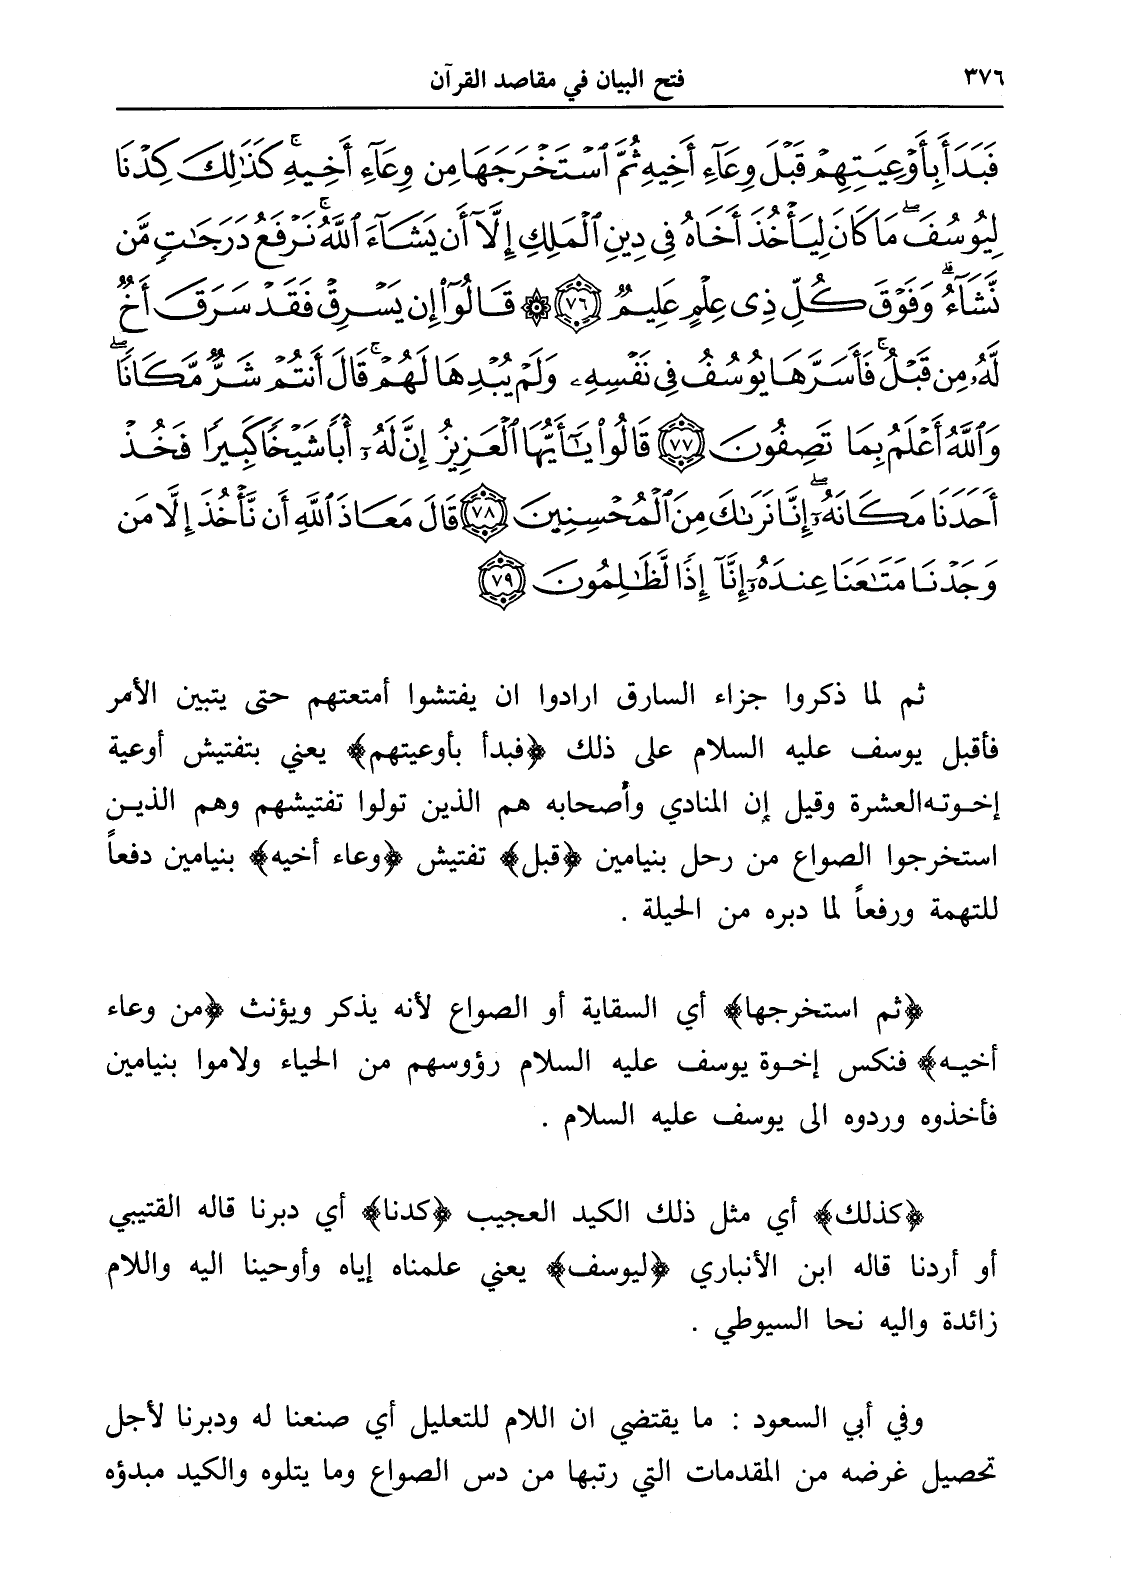 ٣٧٦ فتح البيان في مقاصد القرآن
فَبَدَأَ بِأَوْعِيَتِهِمْ قَبْلَ وِعَآءِ أَخِيهِ ثُمَّ ٱسْتَخْرَجَهَا مِن وِعَآءِ أَخِيهِۚ كَذَٰلِكَ كِدْنَا
لِيُوسُفَۖ مَا كَانَ لِيَأْخُذَ أَخَاهُ فِى دِينِ ٱلْمَلِكِ إِلَّآ أَن يَشَآءَ ٱللَّهُۚ نَرْفَعُ دَرَجَٰتٍ مَّن
نَّشَآءُۗ وَفَوْقَ كُلِّ ذِى عِلْمٍ عَلِيمٌ ٧٦ ۞ قَالُوٓا۟ إِن يَسْرِقْ فَقَدْ سَرَقَ أَخٌ
لَّهُۥ مِن قَبْلُۚ فَأَسَرَّهَا يُوسُفُ فِى نَفْسِهِۦ وَلَمْ يُبْدِهَا لَهُمْۚ قَالَ أَنتُمْ شَرٌّ مَّكَانًاۖ
وَٱللَّهُ أَعْلَمُ بِمَا تَصِفُونَ ٧٧ قَالُوا۟ يَٰٓأَيُّهَا ٱلْعَزِيزُ إِنَّ لَهُۥٓ أَبًا شَيْخًا كَبِيرًا فَخُذْ
أَحَدَنَا مَكَانَهُۥٓۖ إِنَّا نَرَىٰكَ مِنَ ٱلْمُحْسِنِينَ ٧٨ قَالَ مَعَاذَ ٱللَّهِ أَن نَّأْخُذَ إِلَّا مَن
وَجَدْنَا مَتَٰعَنَا عِندَهُۥٓ إِنَّآ إِذًا لَّظَٰلِمُونَ ٧٩
ثم لما ذكروا جزاء السارق ارادوا ان يفتشوا أمتعتهم حتى يتبين الأمر
فأقبل يوسف عليه السلام على ذلك ﴿فبدأ بأوعيتهم﴾ يعني بتفتيش أوعية
إخوته العشرة وقيل إن المنادي وأصحابه هم الذين تولوا تفتيشهم وهم الذين
استخرجوا الصواع من رحل بنيامين ﴿قبل﴾ تفتيش ﴿وعاء أخيه﴾ بنيامين دفعاً
للتهمة ورفعاً لما دبره من الحيلة .
﴿ثم استخرجها﴾ أي السقاية أو الصواع لأنه يذكر ويؤنث ﴿من وعاء
أخيه﴾ فنكس إخوة يوسف عليه السلام رؤوسهم من الحياء ولاموا بنيامين
فأخذوه وردوه الى يوسف عليه السلام .
﴿كذلك﴾ أي مثل ذلك الكيد العجيب ﴿كدنا﴾ أي دبرنا قاله القتيبي
أو أردنا قاله ابن الأنباري ﴿ليوسف﴾ يعني علمناه إياه وأوحينا اليه واللام
زائدة واليه نحا السيوطي .
وفي أبي السعود : ما يقتضي ان اللام للتعليل أي صنعنا له ودبرنا لأجل
تحصيل غرضه من المقدمات التي رتبها من دس الصواع وما يتلوه والكيد مبدؤه